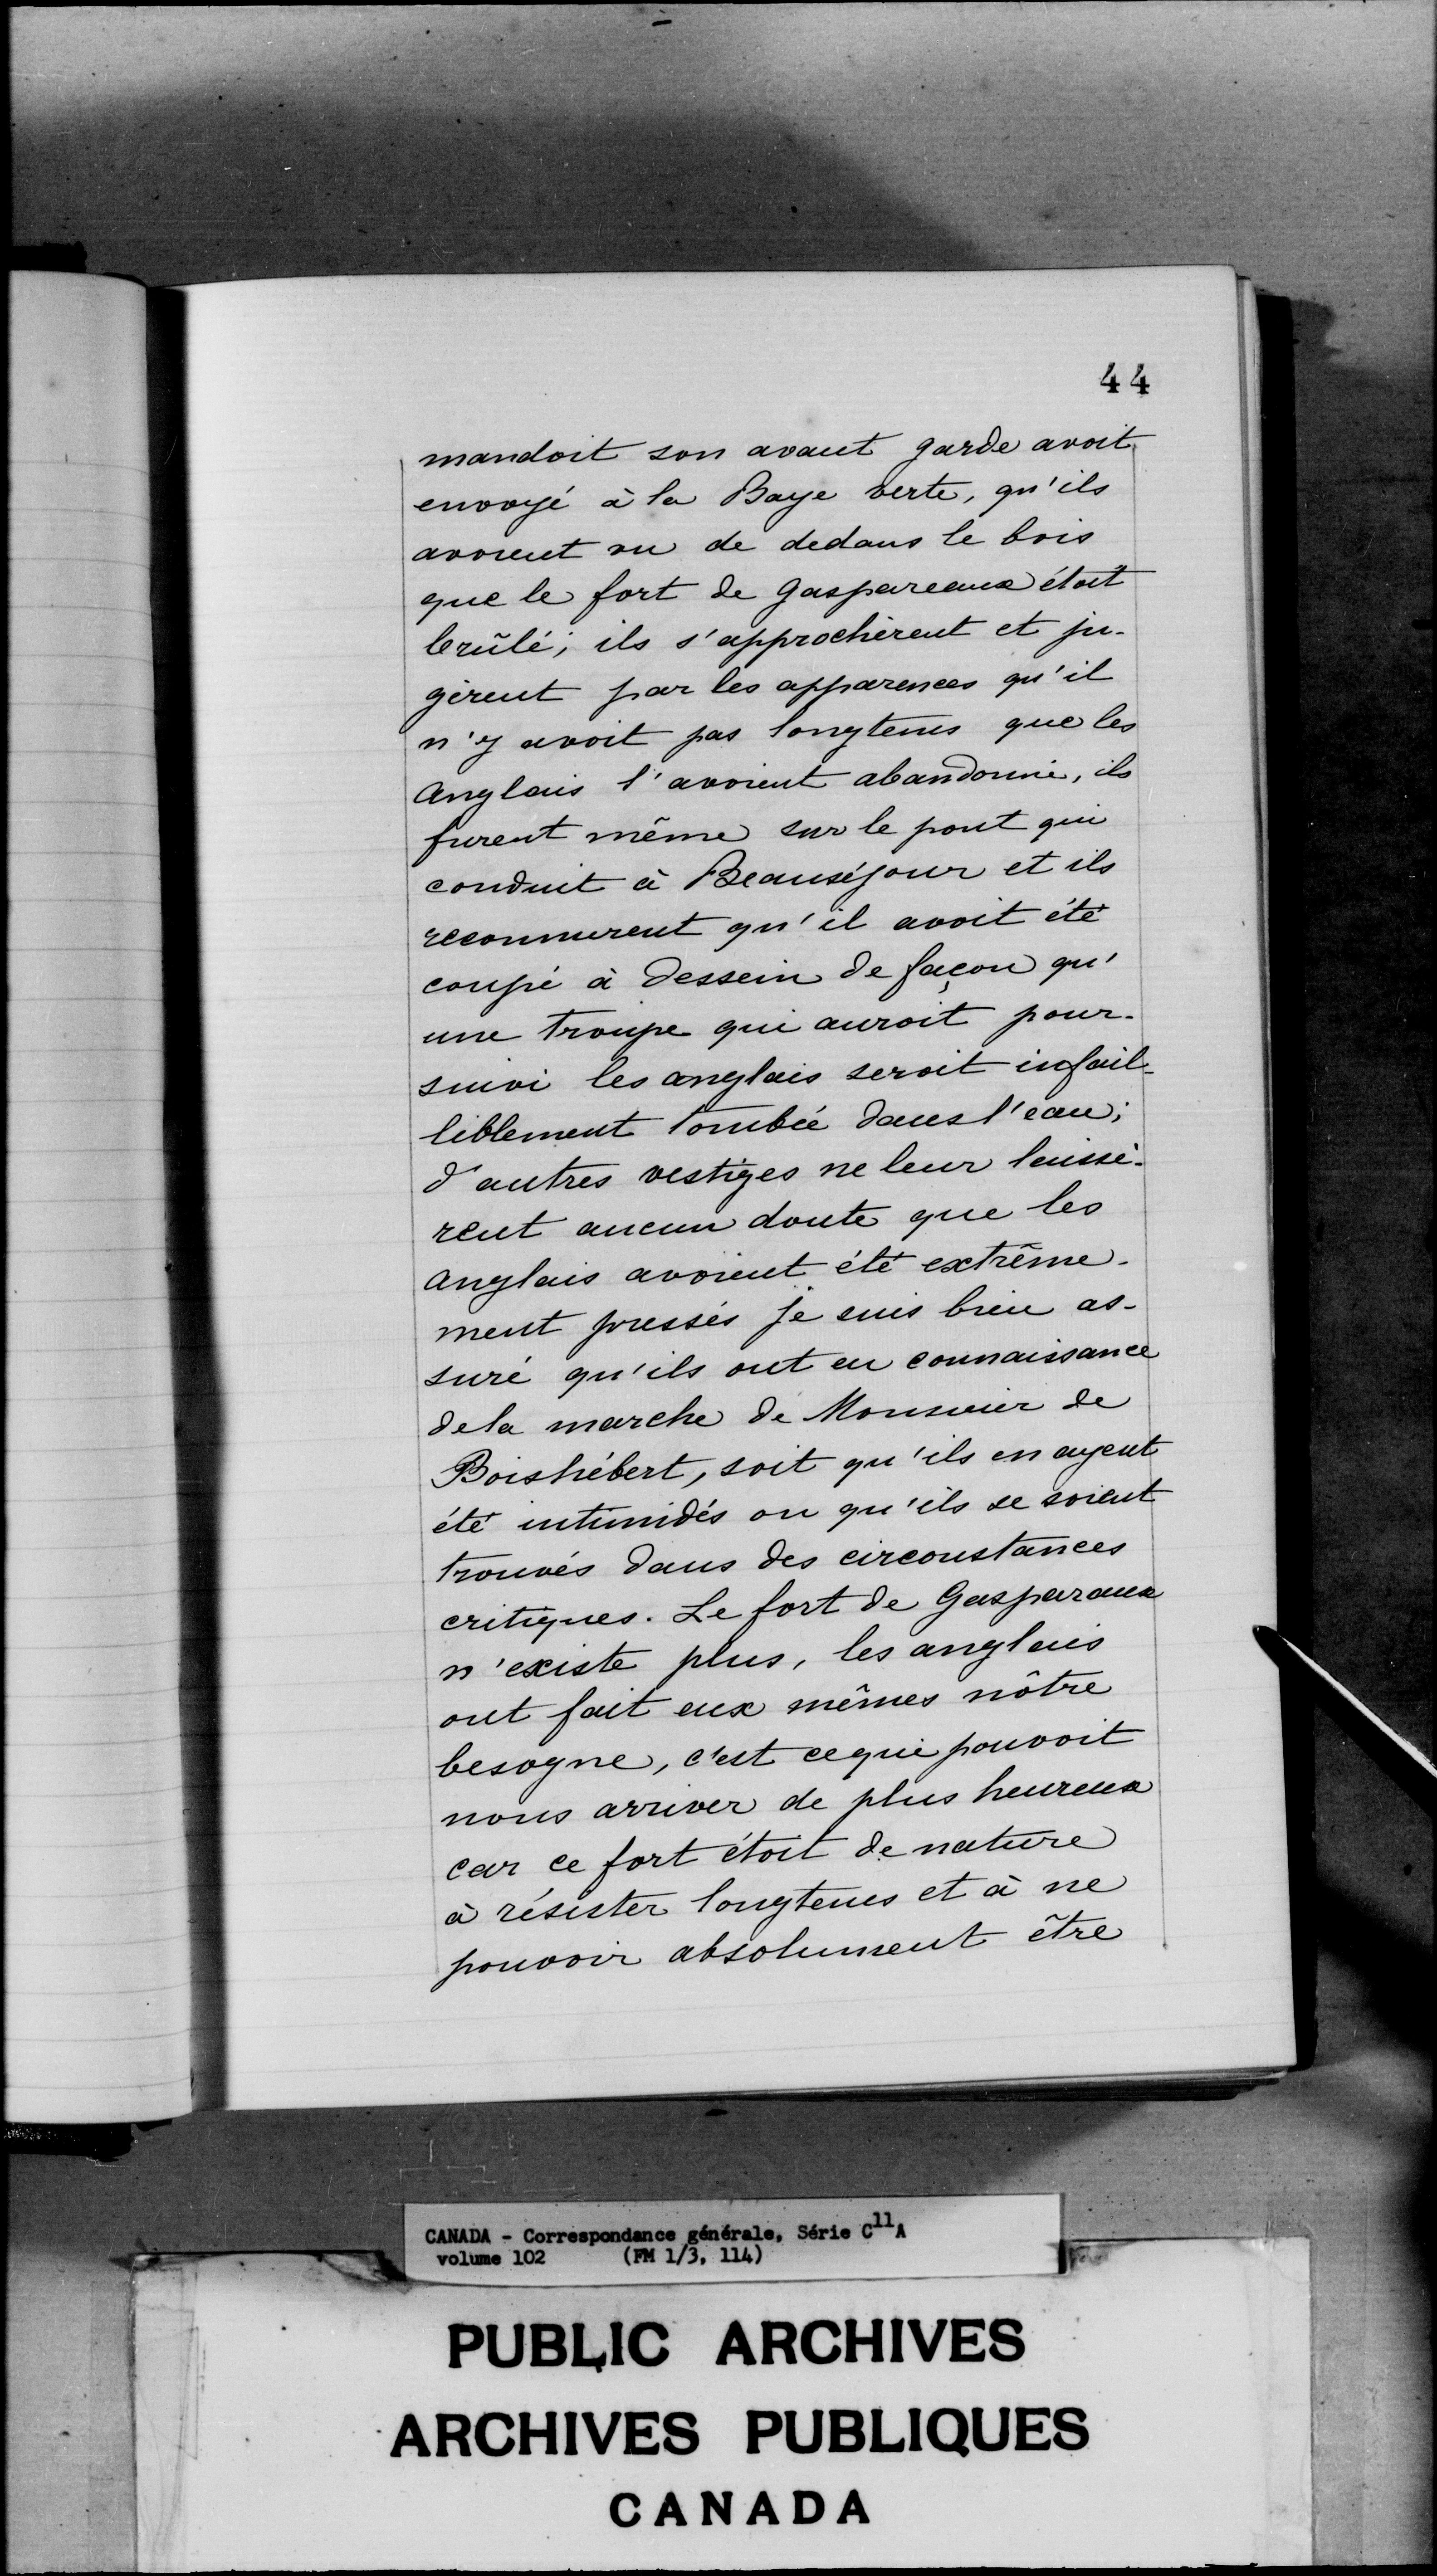 44
mandoit son avant garde avoit
envoyé à la Baye verte, qu'ils
avoient vu de dedans le bois
que le fort de Gaspareaux étoit
brûlé; ils s'approchèrent et ju-
gèrent par les apparences qu'il
n'y avoit pas longtems que les
anglais l'avoient abandonné, ils
furent même sur le pont qui
conduit à Beauséjour et ils
reconnurent qu'il avoit été
coupé à dessein de façon qu'
une troupe qui auroit pour-
suivi les anglais seroit infail-
liblement tombée dans l'eau;
d'autres vestiges ne leur laissè-
rent aucun doute que les
anglais avoient été extrême-
ment pressés je suis bien as-
suré qu'ils ont eu connaissance
de la marche de Monsieur de
Boishébert, soit qu'ils en ayent
été intimidés ou qu'ils se soient
trouvés dans des circonstances
critiques. Le fort de Gasparaux
n'existe plus, les anglais
ont fait eux mêmes nôtre
besogne, c'est ce qui pouvoit
nous arriver de plus heureux
car ce fort étoit de nature
à résister longtems et à ne
pouvoir absolument être
CANADA - Correspondance générale, Série C11A
volume 102 (FM 1/3, 114)
PUBLIC ARCHIVES
ARCHIVES PUBLIQUES
CANADA